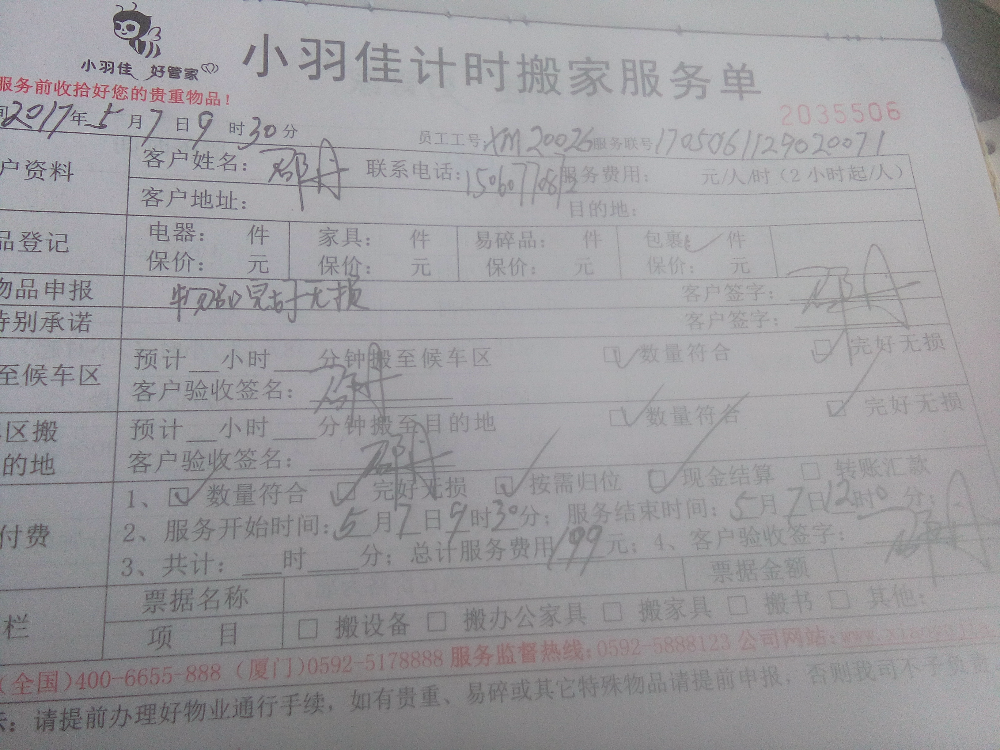 小羽佳 好管家
小羽佳计时搬家服务单
服务前收拾好您的贵重物品!
2035506
2017年5月7日9时30分
员工工号XM20026服务联号17050611129020071
户资料 客户姓名: 联系电话: 服务费用: 元/人/时(2小时起/人)
客户地址: 目的地:
品登记 电器: 件 家具: 件 易碎品: 件 包裹: 件
保价: 元 保价: 元 保价: 元 保价: 元
物品申报 完好无损 客户签字:
特别承诺 客户签字:
至候车区 预计__小时___分钟搬至候车区 数量符合 完好无损
客户验收签名:
区搬 预计__小时___分钟搬至目的地 数量符合 完好无损
的地 客户验收签名:
付费 1、 数量符合 完好无损 按需归位 现金结算 转账汇款
2、服务开始时间:5月7日9时30分;服务结束时间:5月7日12时0分;
3、共计:___时____分;总计服务费用199元;4、客户验收签字:
栏 票据名称 票据金额
项 目 搬设备 搬办公家具 搬家具 搬书 其他:
(全国)400-6655-888 (厦门)0592-5178888 服务监督热线:0592-5888123 公司网站:
请提前办理好物业通行手续,如有贵重、易碎或其它特殊物品请提前申报,否则我司不予负责